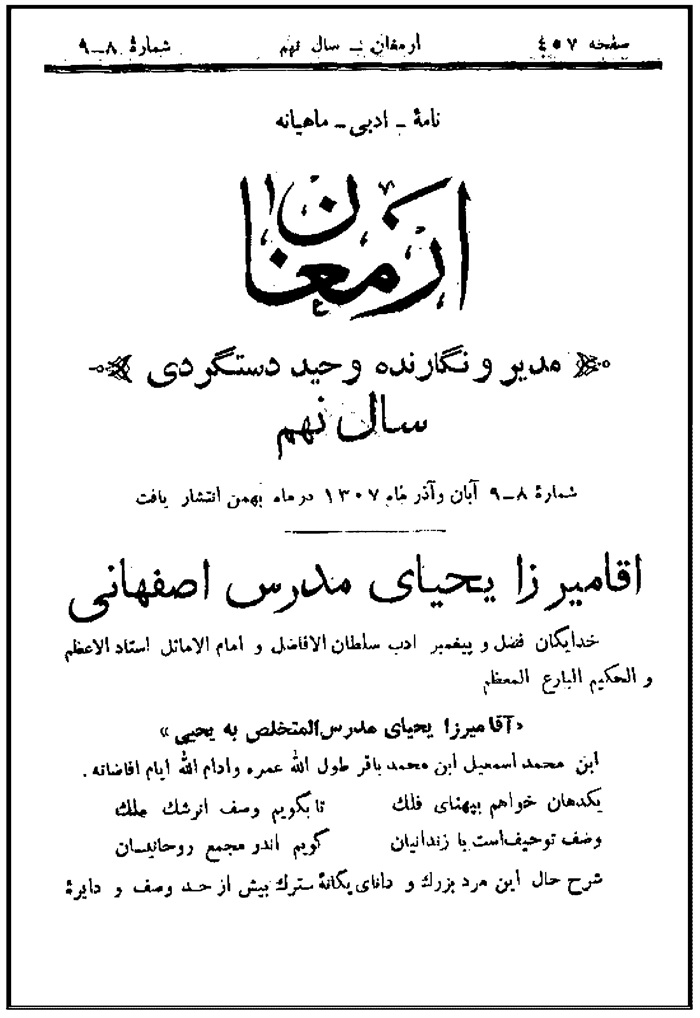 صفحه ٤٥٧ ارمغان ـ سال نهم شمارهٔ ٨ـ٩
نامهٔ ـ ادبی ـ ماهیانه
ارمغان
مدیر و نگارنده وحید دستگردی
سال نهم
شمارهٔ ٨ـ٩ آبان وآذر ماه ١٣٠٧ در ماه بهمن انتشار یافت
اقامیرزا یحیای مدرس اصفهانی
خدایگان فضل و پیغمبر ادب سلطان الافاضل و امام الاماثل استاد الاعظم
و الحکیم البارع المعظم
«آقا میرزا یحیای مدرس المتخلص به یحیی»
ابن محمد اسمعیل ابن محمد باقر طول الله عمره وادام الله ایام افاضاته .
یکدهان خواهم بپهنای فلك تا بگویم وصف انرشك ملك
وصف توحیف‌است با زندانیان گویم اندو مجمع روحانیسان
شرح حال این مرد بزرك و دانای یگانهٔ سترك بیش از حد وصف و دایرهٔ